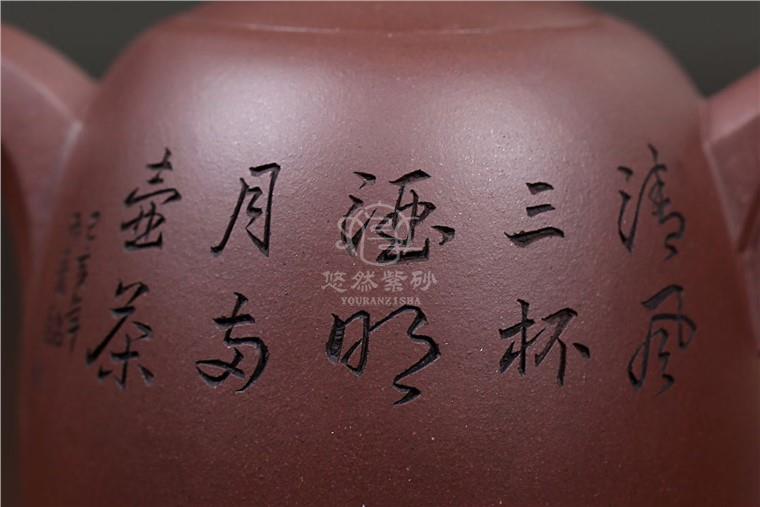 清风
三杯
酒明
月两
壶茶
悠然紫砂
YOURANZISHA